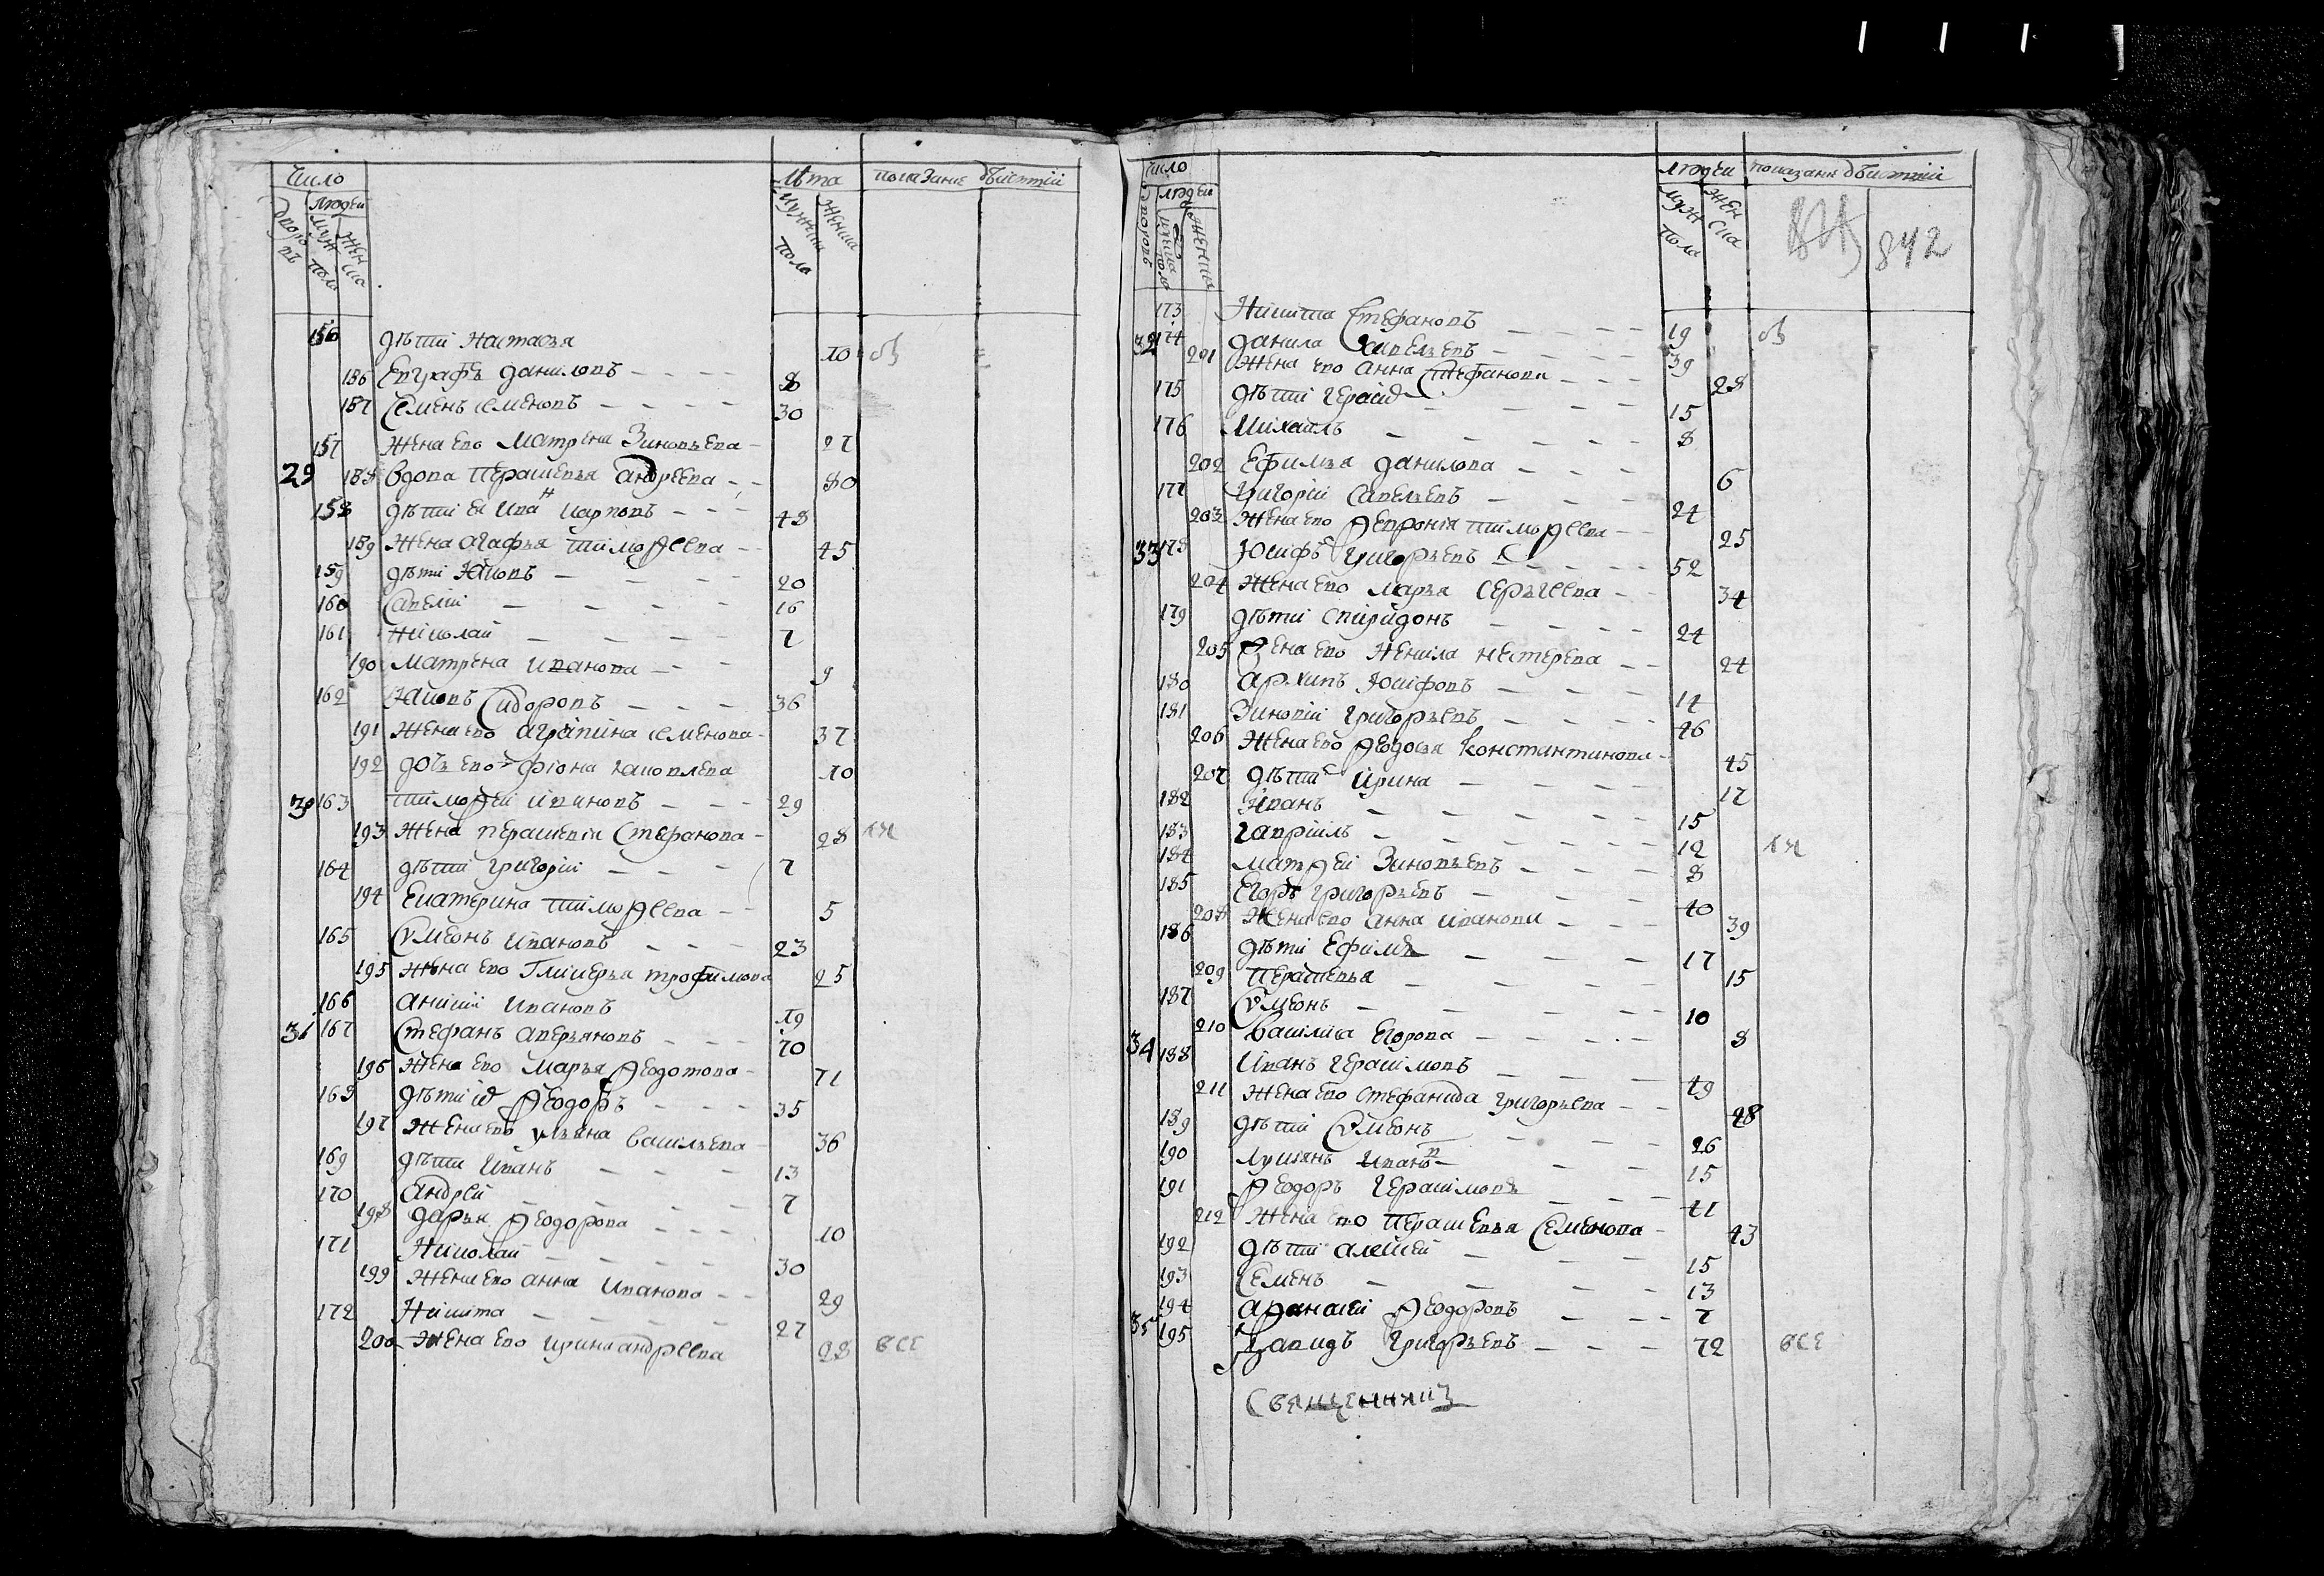 Число
Лѣта
показание дѣиствiи
людеи
дворовъ
муж пола
женска
мужеска пола
женска
156 дѣти Настасья 10 об
186 Евграфъ даниловъ 8
187 Семенъ семеновъ 30
157 жена ево Матрена Зиновьева 27
29 188 вдова Парашевья андреева 80
158 дѣти ея Иванъ карповъ 48
189 жена агафья тимоѳеева 45
159 дѣти Яковъ 20
160 Савелiи 16
161 николаи 7
190 матрена иванова 9
162 Яковъ Сидоровъ 36
191 жена ево аграпина семенова 37
192 дочь ево фiона яковлева 10
30 163 тимоѳеи ивановъ 29
193 жена перашевiя Стефанова 28
164 дѣти григорiи 7
194 Екатерина тимоѳеева 5
165 Сѵмеонъ ивановъ 23
195 жена ево Гликерья трофимова 25
166 Ивановъ 19
31 167 Стефанъ аверьяновъ 70
196 жена ево Марья ѳедотова 71
168 дѣти ѳеодоръ 35
197 жена ево ульяна васильева 36
169 дѣти иванъ 13
170 андреи 7
198 дарья ѳеодорова 10
171 Николаи 30
199 жена ево анна иванова 29
172 Никита 27
200 жена ево ирина андреева 28 все
Число
людеи
показание дѣиствiи
дворовъ
людеи
муж пола
женска
842
173 Никита Стефановъ 19 об
32 174 данила Савельевъ 39
201 жена ево анна Стефанова 28
175 дѣти 15
176 Михаилъ 8
202 Ефимья данилова 6
177 григорiи Савельевъ 24
203 жена ево ѳевронiя тимоѳеева 25
33 178 Iосифъ григорьевъ 52
204 жена ево марья сергеева 34
179 дѣти спиридонъ 24
205 жена ево Ненила нестерева 24
180 архипъ Iосифовъ 14
181 Зиновiи григорьевъ 46
206 жена ево ѳеодосья константинова 45
207 дѣти ирина 17
182 иванъ 15
183 гаврiилъ 12
184 матѳеи Зиновьевъ 8
185 Егоръ григорьевъ 40
208 жена ево анна иванова 39
186 дѣти Ефимъ 17
209 Перашевья 15
187 Сѵмеонъ 10
210 василиса Егорова 8
34 188 иванъ герасимовъ 49
211 жена ево стефанида григорьева 48
189 дѣти Сѵмеонъ 26
190 лукьянъ 15
191 ѳеодоръ герасимовъ 41
212 жена ево перашевья Семенова 43
192 дѣти алексеи 15
193 Семенъ 13
194 аѳанасеи ѳеодоровъ 7
35 195 Давидъ григорьевъ 72 все
Священникъ